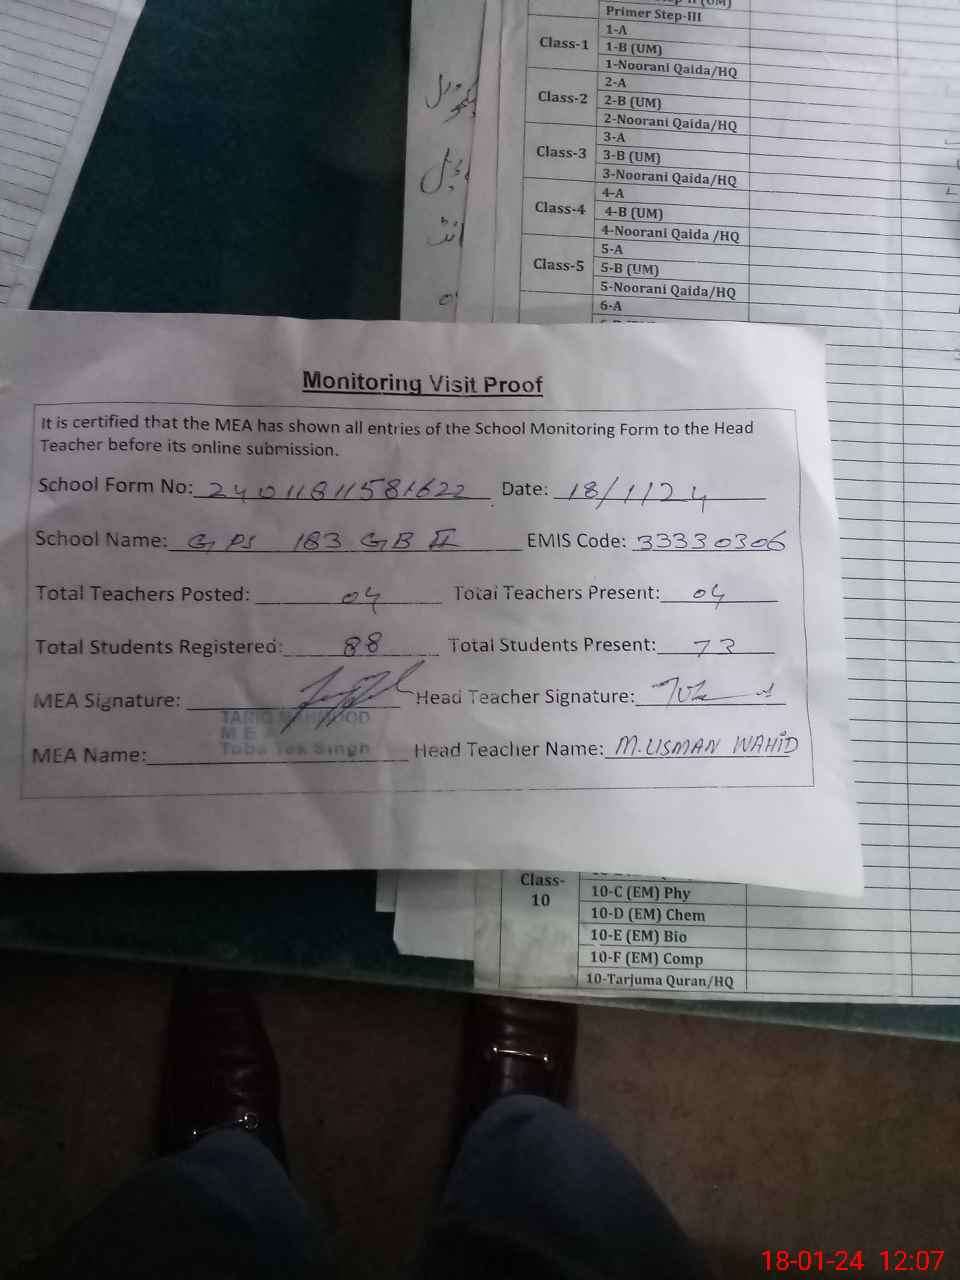 Primer Step-III
Class-1
1-A
1-B (UM)
1-Noorani Qaida/HQ
Class-2
2-A
2-B (UM)
2-Noorani Qaida/HQ
Class-3
3-A
3-B (UM)
3-Noorani Qaida/HQ
Class-4
4-A
4-B (UM)
4-Noorani Qaida /HQ
Class-5
5-A
5-B (UM)
5-Noorani Qaida/HQ
6-A
Monitoring Visit Proof
It is certified that the MEA has shown all entries of the School Monitoring Form to the Head
Teacher before its online submission.
School Form No: 24011811581622 Date: 18/1/24
School Name: GPS 183 GB II EMIS Code: 33330306
Total Teachers Posted: 04 Total Teachers Present: 04
Total Students Registered: 88 Total Students Present: 73
MEA Signature: Head Teacher Signature:
TARIQ MAHMOOD
MEA
Toba Tek Singh
MEA Name: Head Teacher Name: M.USMAN WAHiD
Class-
10
10-C (EM) Phy
10-D (EM) Chem
10-E (EM) Bio
10-F (EM) Comp
10-Tarjuma Quran/HQ
18-01-24 12:07